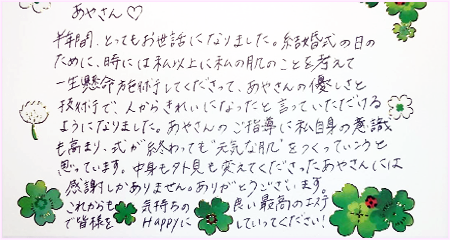 あやさん♡
半年間、とってもお世話になりました。結婚式の日の
ために、時には私以上に私の肌のことを考えて
一生懸命施術してくださって、あやさんの優しさと
技術で、人からきれいになったと言っていただける
ようになりました。あやさんのご指導に私自身の意識
も高まり、式が終わっても"元気な肌"をつくっていこうと
思っています。中身も外見も変えてくださったあやさんには
感謝しかありません。ありがとうございます。
これからも 気持ちの 良い最高のエステ
で皆様を Happyに していってください!